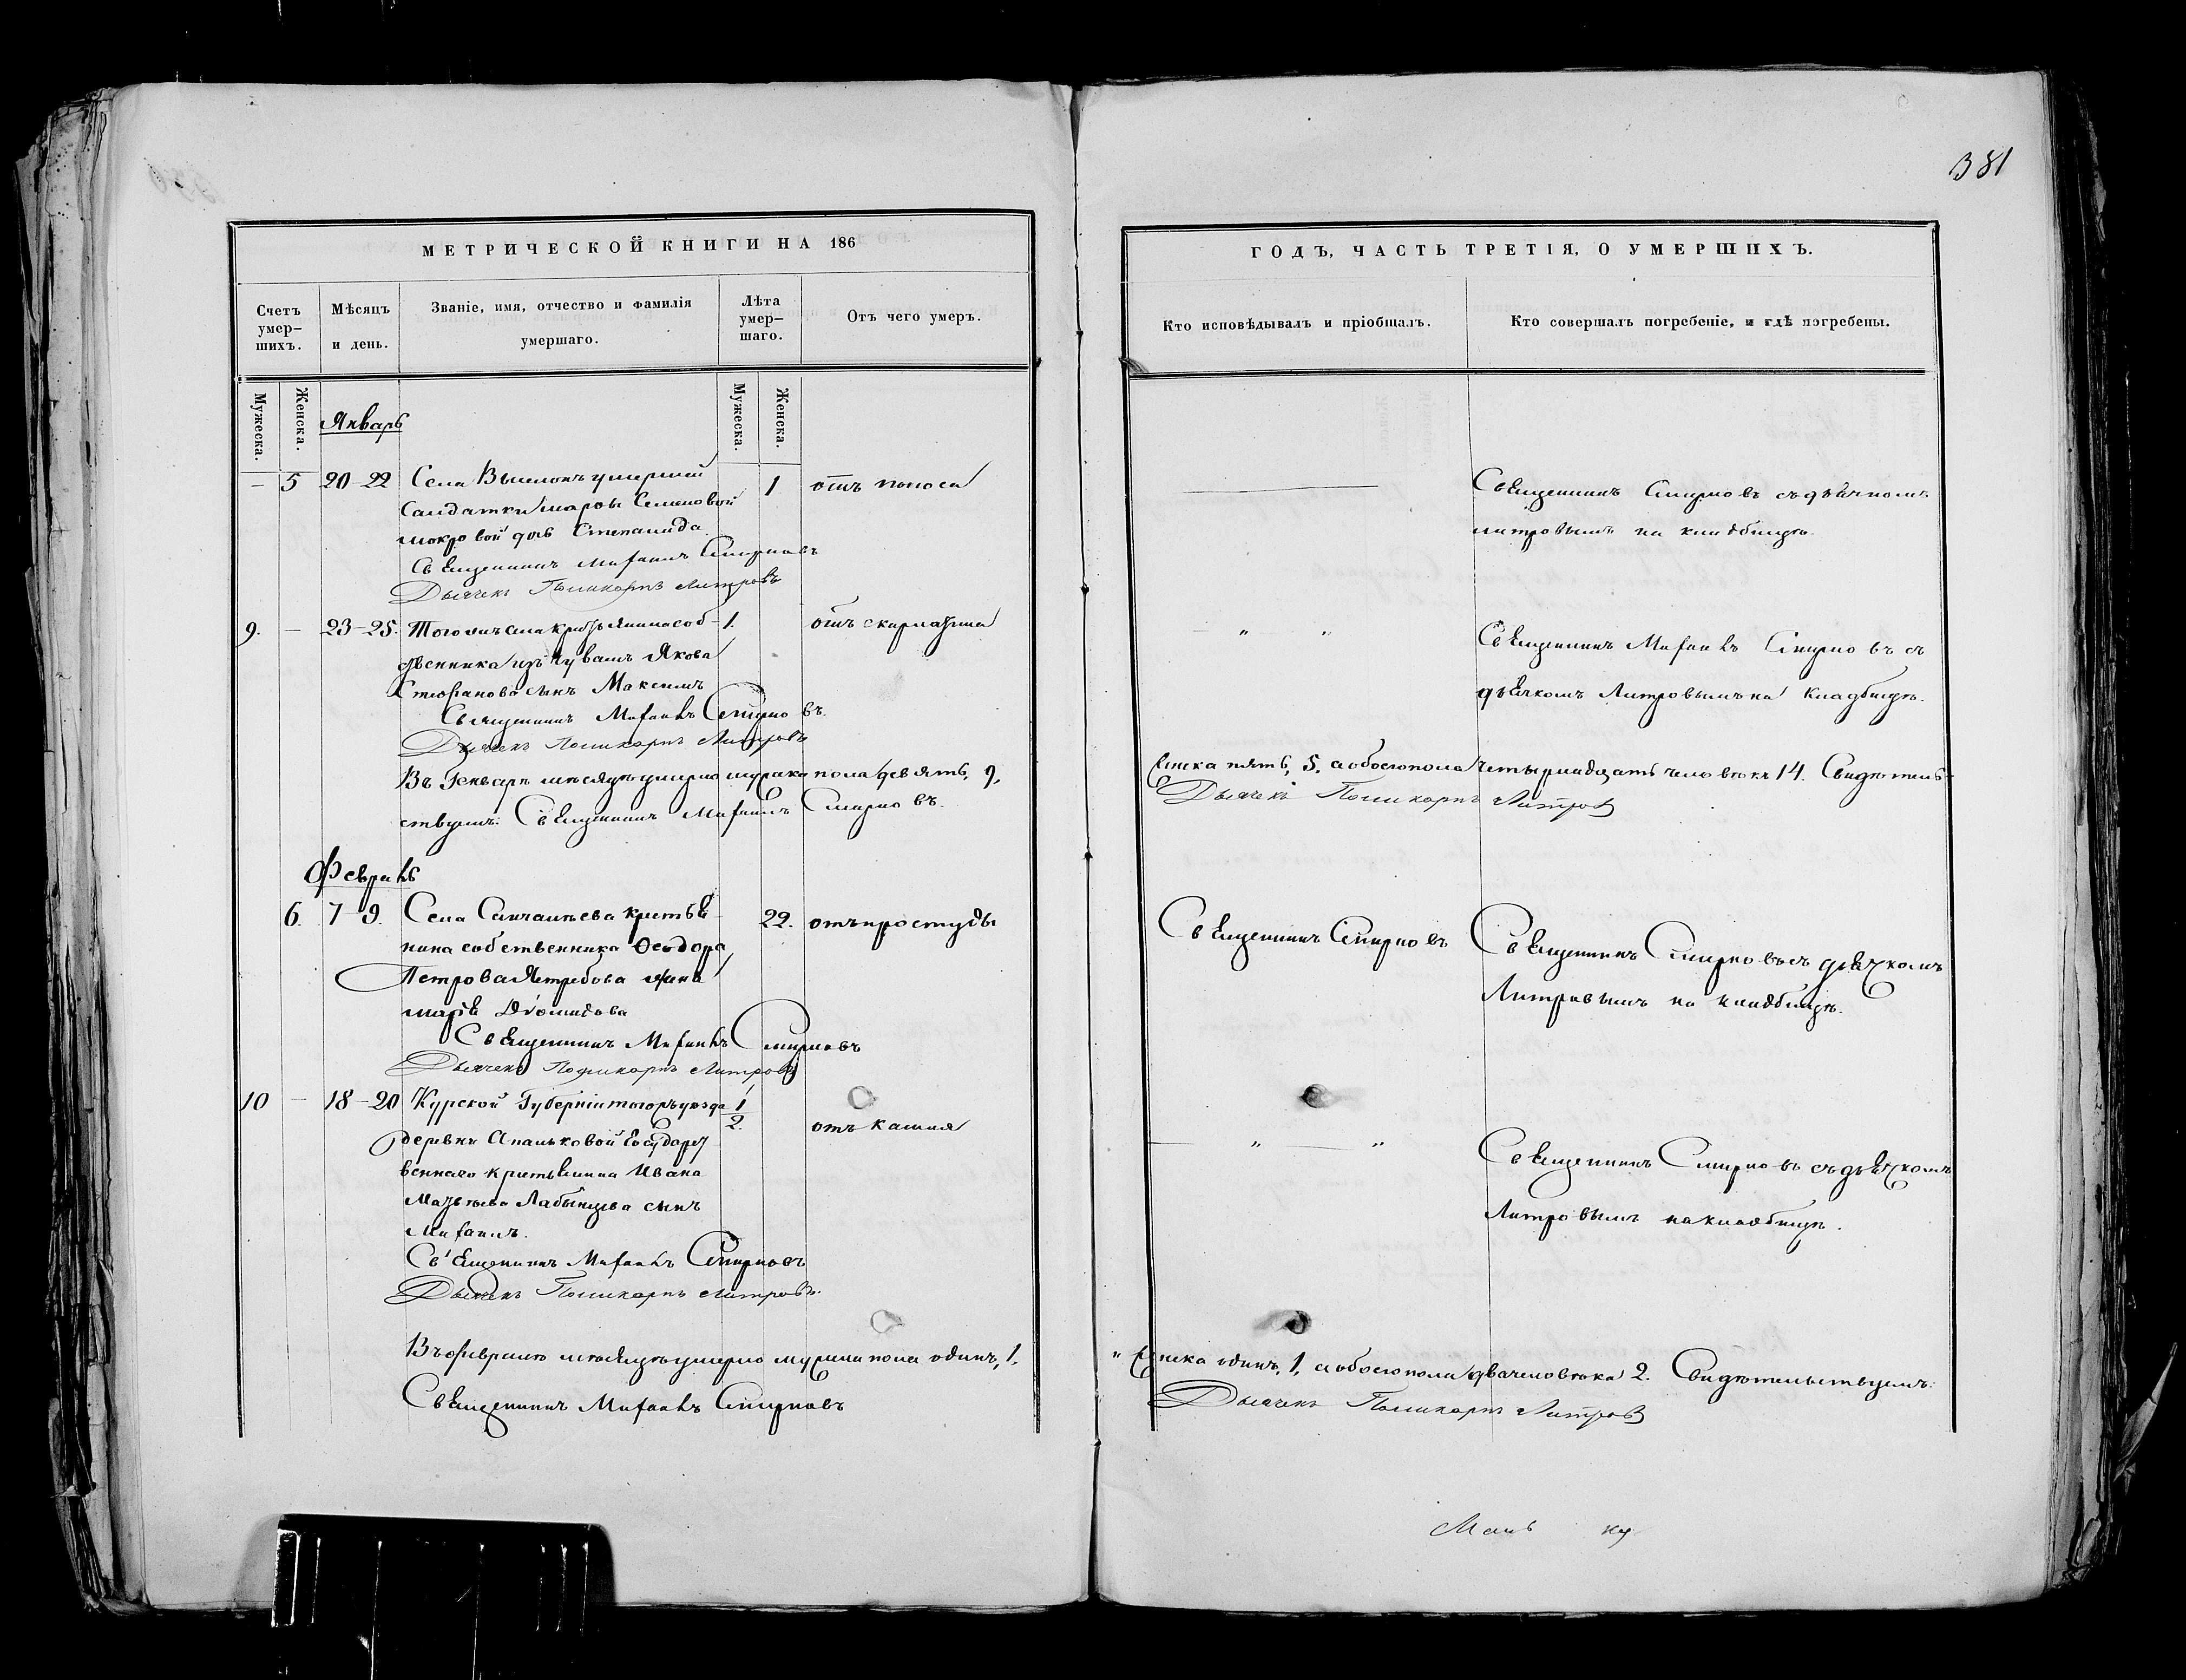 381
МЕТРИЧЕСКОЙ КНИГИ НА 186
Счетъ умер-шихъ.
Мѣсяцъ и день.
Званіе, имя, отчество и фамилія умершаго.
Лѣта умер-шаго.
Отъ чего умеръ.
Мужеска.
Женска.
Мужеска.
Женска.
Январь
— 5 20-22 Села умершей 1 отъ поноса
салдатки Семеновой
дочь Степанида
Священникъ Михаилъ Смирновъ
Дьячекъ Поликарпъ Литровъ
9. — 23-25. Тогожъ села соб- 1. отъ скарлатины
ственника изъ чувашъ Якова
Стефанова сынъ Максимъ
Священникъ Михаилъ Смирновъ.
Дьячекъ Поликарпъ Литровъ
Въ Генварѣ мѣсяцѣ умерло мужска пола девять, 9,
ствуемъ: Священникъ Михаилъ Смирновъ.
Февраль
6. 7-9. Села крестья- 22. отъ простуды
нина собственника Ѳеодора
Петрова Ястребова жена
Марія Діомидова
Священникъ Михаилъ Смирновъ
Дьячекъ Поликарпъ Литровъ
10 — 18-20 Курской Губерніи тогожъ уѣзда 1/2. отъ кашля
деревни Государст
веннаго крестьянина Ивана
сынъ
Михаилъ.
Священникъ Михаилъ Смирновъ
Дьячекъ Поликарпъ Литровъ.
Въ февралѣ мѣсяцѣ умерло мужска пола одинъ, 1,
Священникъ Михаилъ Смирновъ
ГОДЪ, ЧАСТЬ ТРЕТІЯ, О УМЕРШИХЪ.
Кто исповѣдывалъ и пріобщалъ.
Кто совершалъ погребеніе, и гдѣ погребены.
Священникъ Смирновъ съ дьячкомъ
Литровымъ на кладбищѣ.
" " Священникъ Михаилъ Смирновъ съ
дьячкомъ Литровымъ на кладбищѣ.
женска пять, 5, а обоего пола четырнадцать человѣкъ 14. Свидѣтель-
Дьячекъ Поликарпъ Литровъ
Священникъ Смирновъ Священникъ Смирновъ съ дьячкомъ
Литровымъ на кладбищѣ.
" " Священникъ Смирновъ съ дьячкомъ
Литровымъ на кладбищѣ.
" женска одинъ, 1, а обоего пола два человѣка 2. Свидѣтельствуемъ:
Дьячекъ Поликарпъ Литровъ